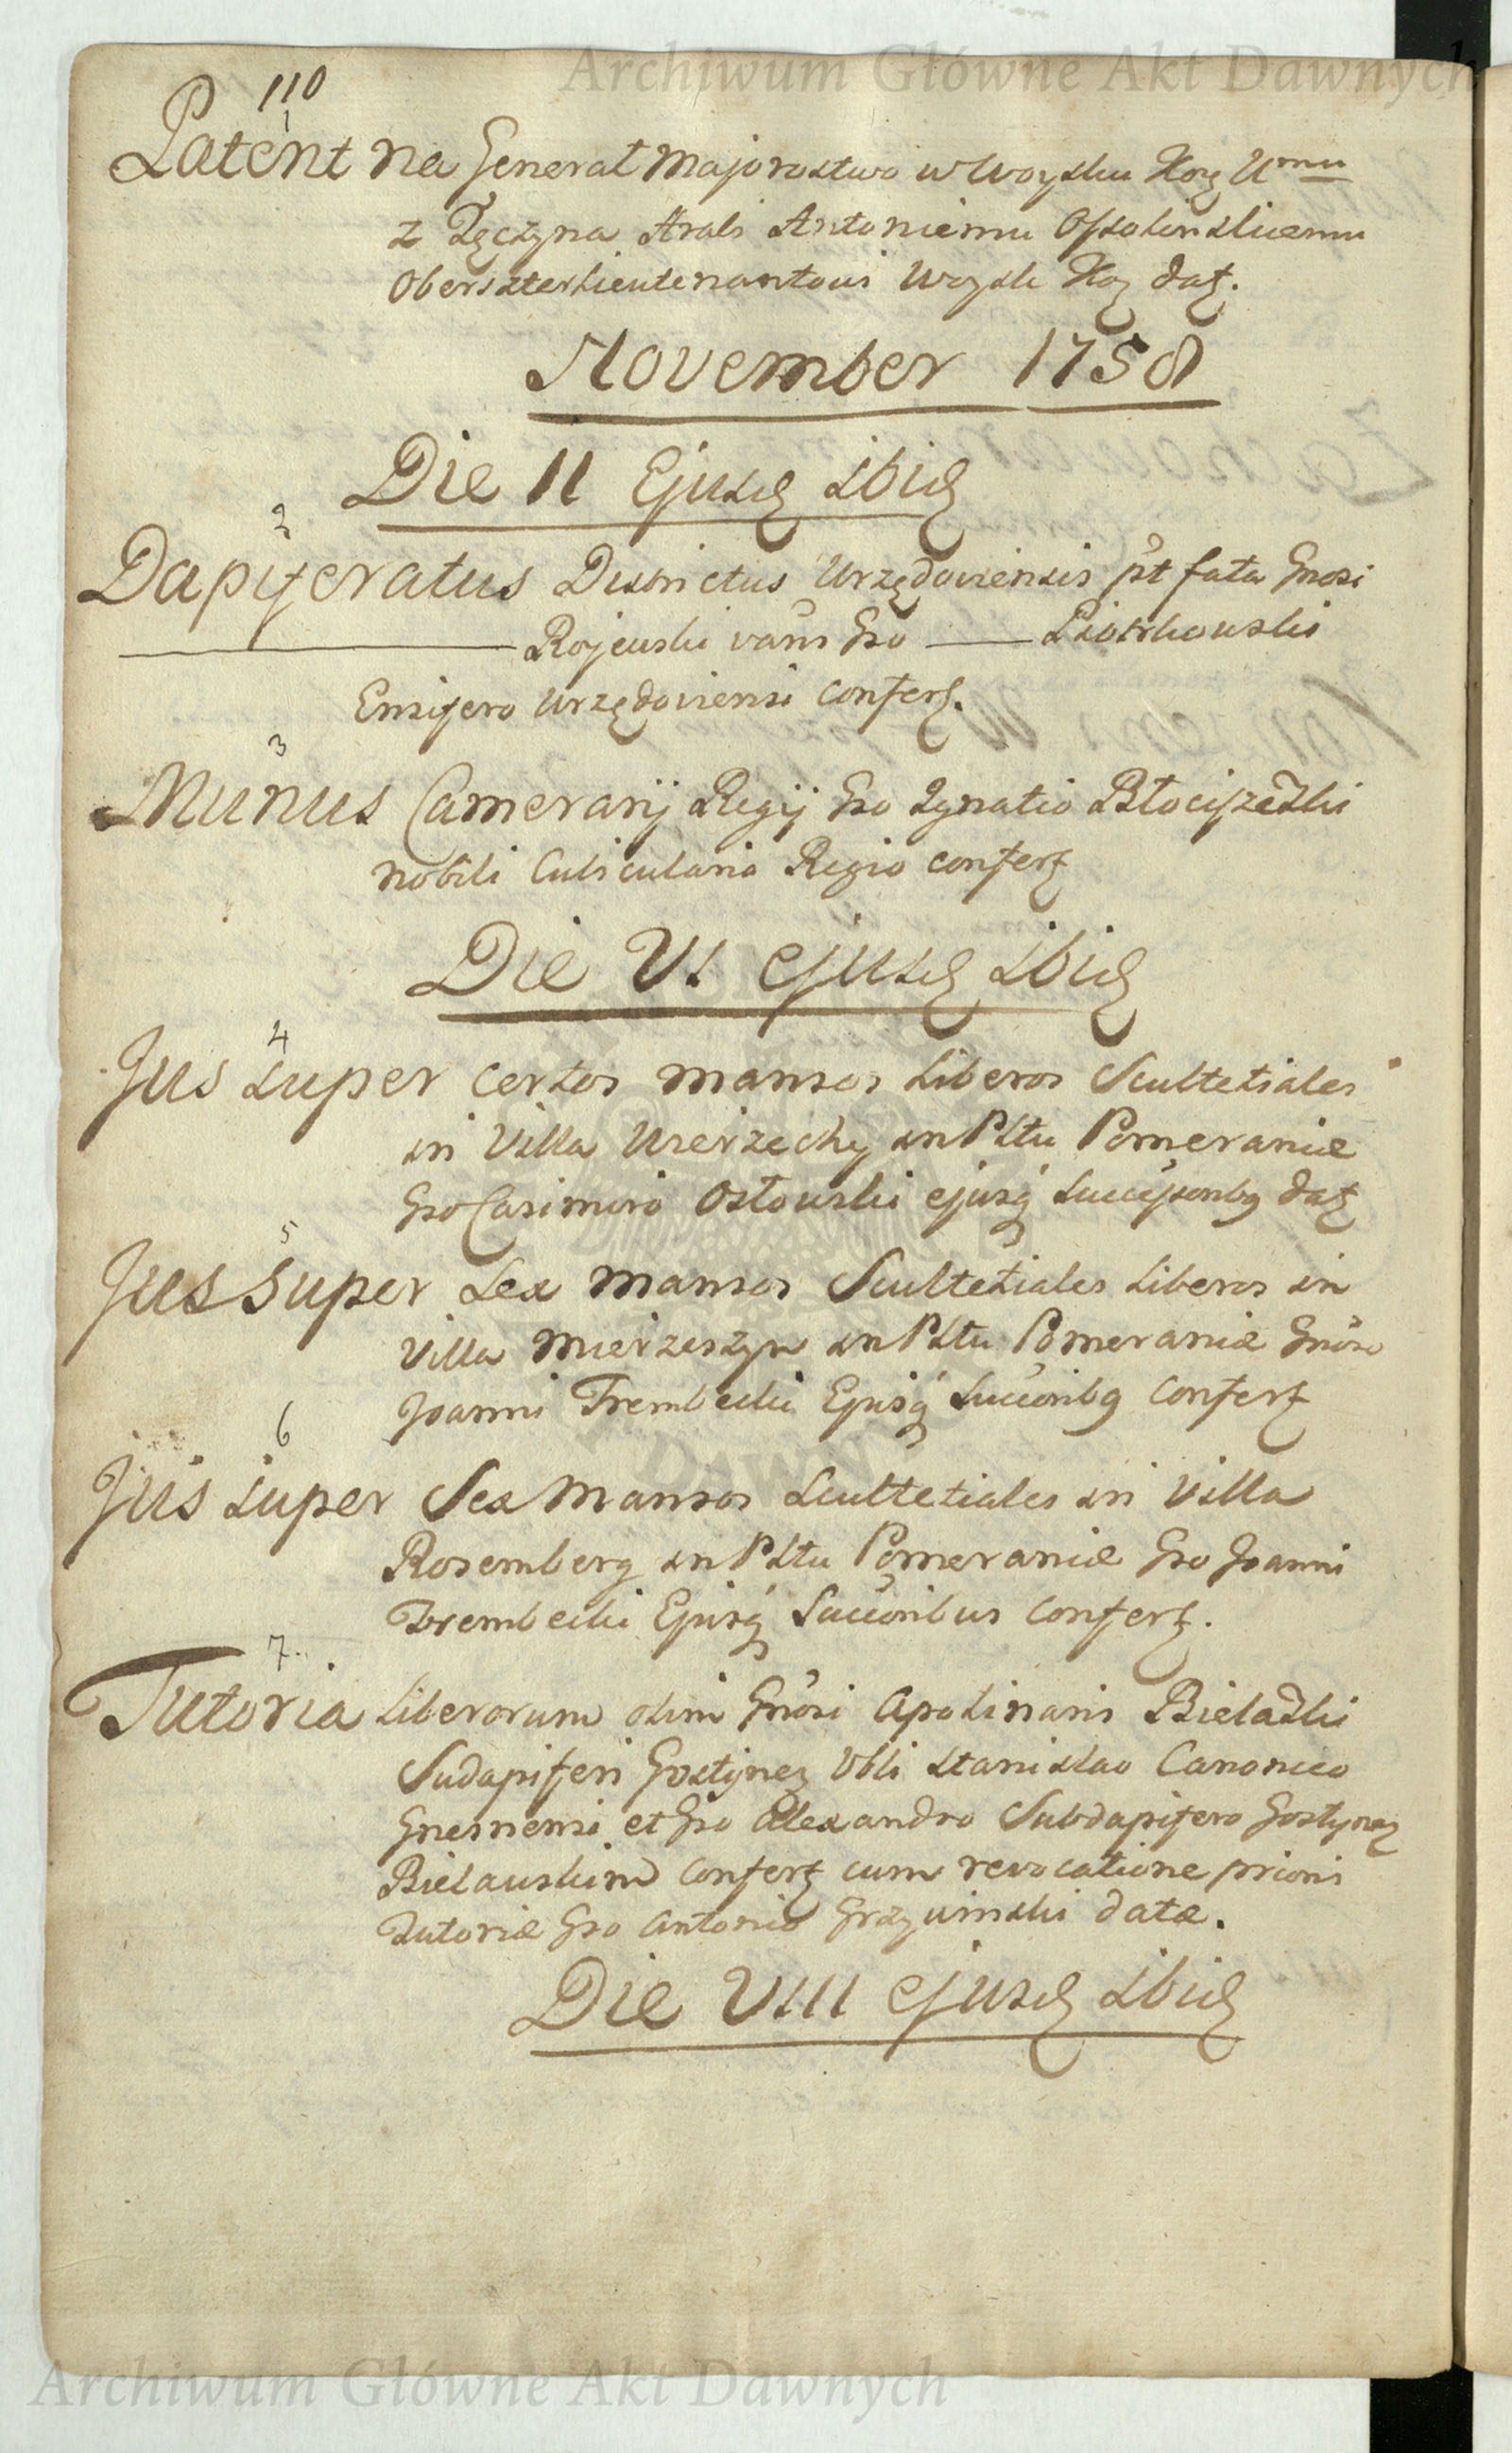 Archiwum Główne Akt Dawnych
110
1
Patent na General Majorostwo w Woysku Kor Umu
z Tęczyna Hrabi Antoniemu Ossolinskiemu
Oberszterlieutenantowi Woysk Kor dat.
November 1758
Die II Ejusd ibid
2
Dapiferatus Districtus Urzędoviensis pt fata Gnosi
Rojewski vans Gso Piotrkowski
Ensifero Urzędoviensi confert.
3
Munus Camerarij Regij Gso Ignatio Błociszewski
nobili Cubiculario Regio confert
Die VI ejusd ibid
4
Jus super certos mansos liberos Scultetiales
in Villa Wierzchy in Pltu Pomeraniæ
Gso Casimiro Ostowski ejusq successonbg dat
5
Jus super sex mansos Scultetiales liberos in
Villa Mierzeszyn in Pltu Pomeraniæ Gnoso
Joanni Trembecki Ejusq succonibg confert
6
Jus super Sex Mansos Scultetiales in Villa
Rosemberg in Pltu Pomeraniæ Gso Joanni
Trembecki Ejusq Succonibus confert.
7
Tutoria liberorum olim Gnosi Apolinaris Bielawski
Sudapiferi Gostynen Vbli Stanislao Canonico
Gnesnensi et Gso Alexandro Subdapifero Gostynen
Bielawskim confert cum revocatione prioris
tutoriæ Gso Antonio Grzywinski datæ.
Die VIII ejusd ibid
Archiwum Główne Akt Dawnych